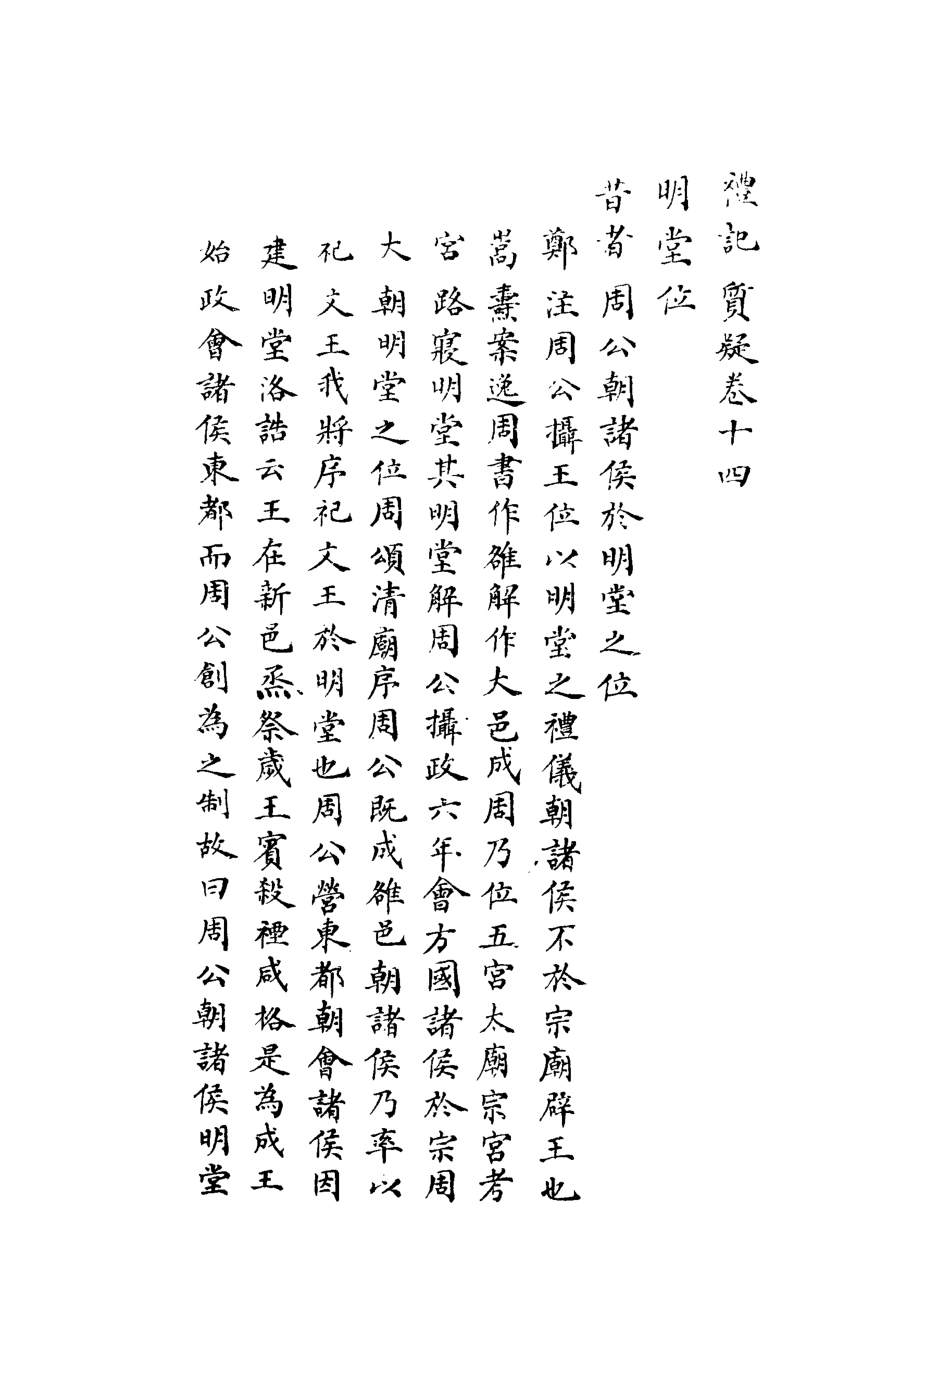 禮記質疑卷十四
明堂位
昔者周公朝諸侯於明堂之位
鄭注周公攝王位以明堂之禮儀朝諸侯不於宗廟辟王也
嵩燾案逸周書作雒解作大邑成周乃位五宮太廟宗宮考
宮路寢明堂其明堂解周公攝政六年會方國諸侯於宗周
大朝明堂之位周頌清廟序周公既成雒邑朝諸侯乃率以
祀文王我將序祀文王於明堂也周公營東都朝會諸侯因
建明堂洛誥云王在新邑烝祭歲王賓殺禋咸格是為成王
始政會諸侯東都而周公創為之制故曰周公朝諸侯明堂